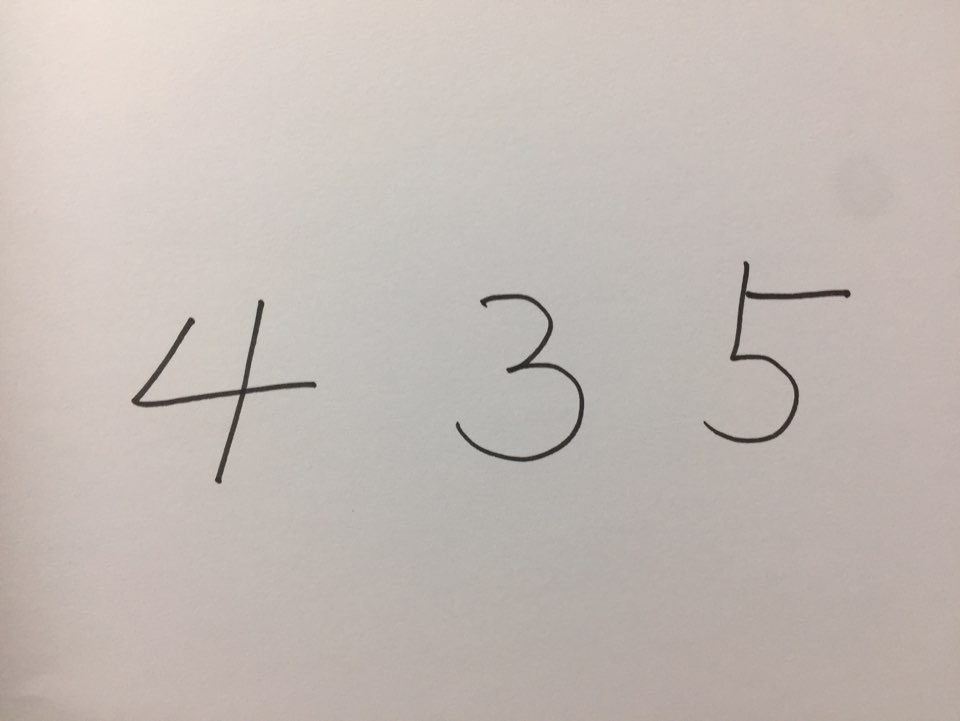 4 3 5